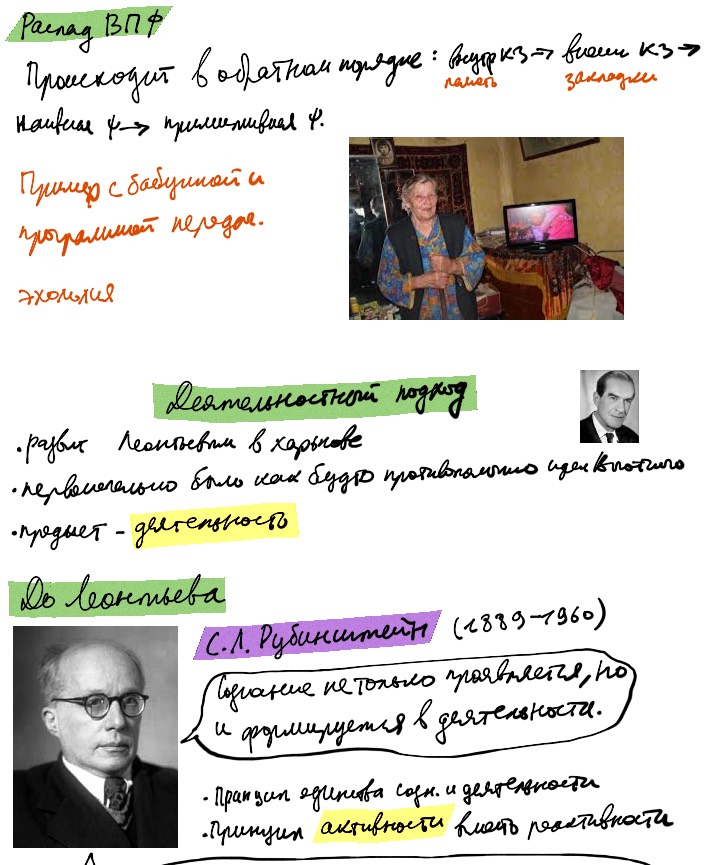 Распад ВПФ
Происходит в обратном порядке: внутр КЗ → внешн КЗ →
память закладки
наивная ψ → примитивная ψ.
Пример с бабушкой и
программой передач.
эхолалия
Деятельностный подход
• развит Леонтьевым в Харькове
• первоначально было как будто противопоставлено идеи Выготского
• предмет - деятельность
До Леонтьева
С.Л. Рубинштейн (1889-1960)
Сознание не только проявляется, но
и формируется в деятельности.
• Принцип единства созн. и деятельности
• Принцип активности вместо реактивности